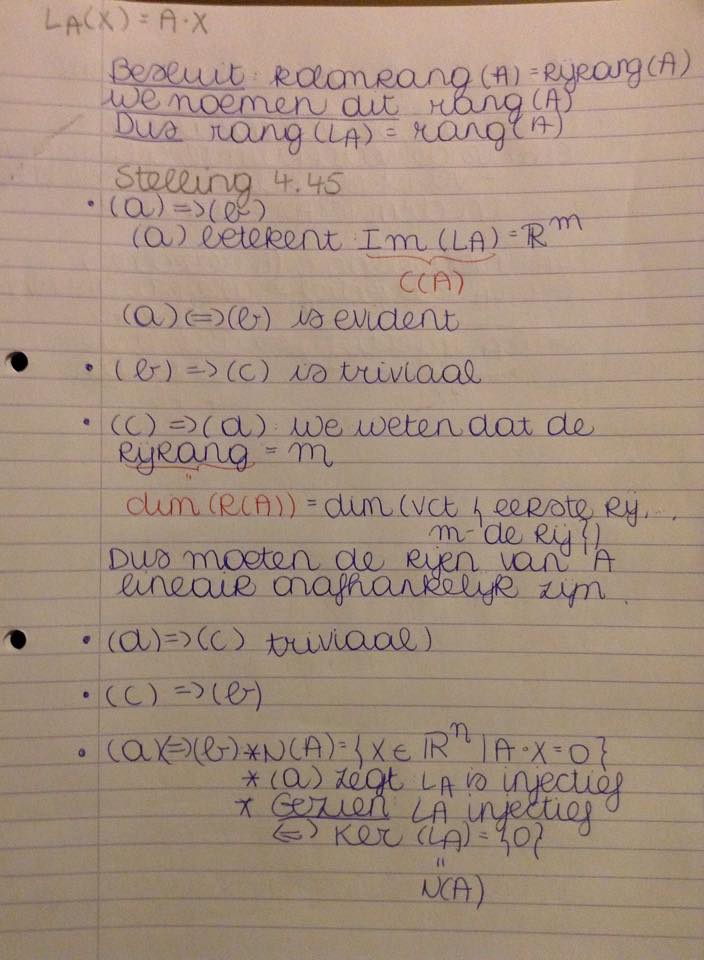 LA(X) = A·X
Besluit: Kolomrang(A) = Rijrang(A)
We noemen dit rang(A)
Dus rang(LA) = rang(A)
Stelling 4.45
• (a) => (b)
(a) betekent Im(LA) = ℝ^m
C(A)
(a) <=> (b) is evident
• (b) => (c) is triviaal
• (c) => (d) we weten dat de
Rijrang = m
"
dim(R(A)) = dim(vct { eerste rij, ..
m-de rij})
Dus moeten de rijen van A
lineair onafhankelijk zijn.
• (d) => (c) triviaal)
• (c) => (b)
• (a) <=> (b) * N(A) = {X ∈ ℝ^n | A·X = 0}
* (a) zegt LA is injectief
* Gezien LA injectief
<=> Ker(LA) = {0}
"
N(A)